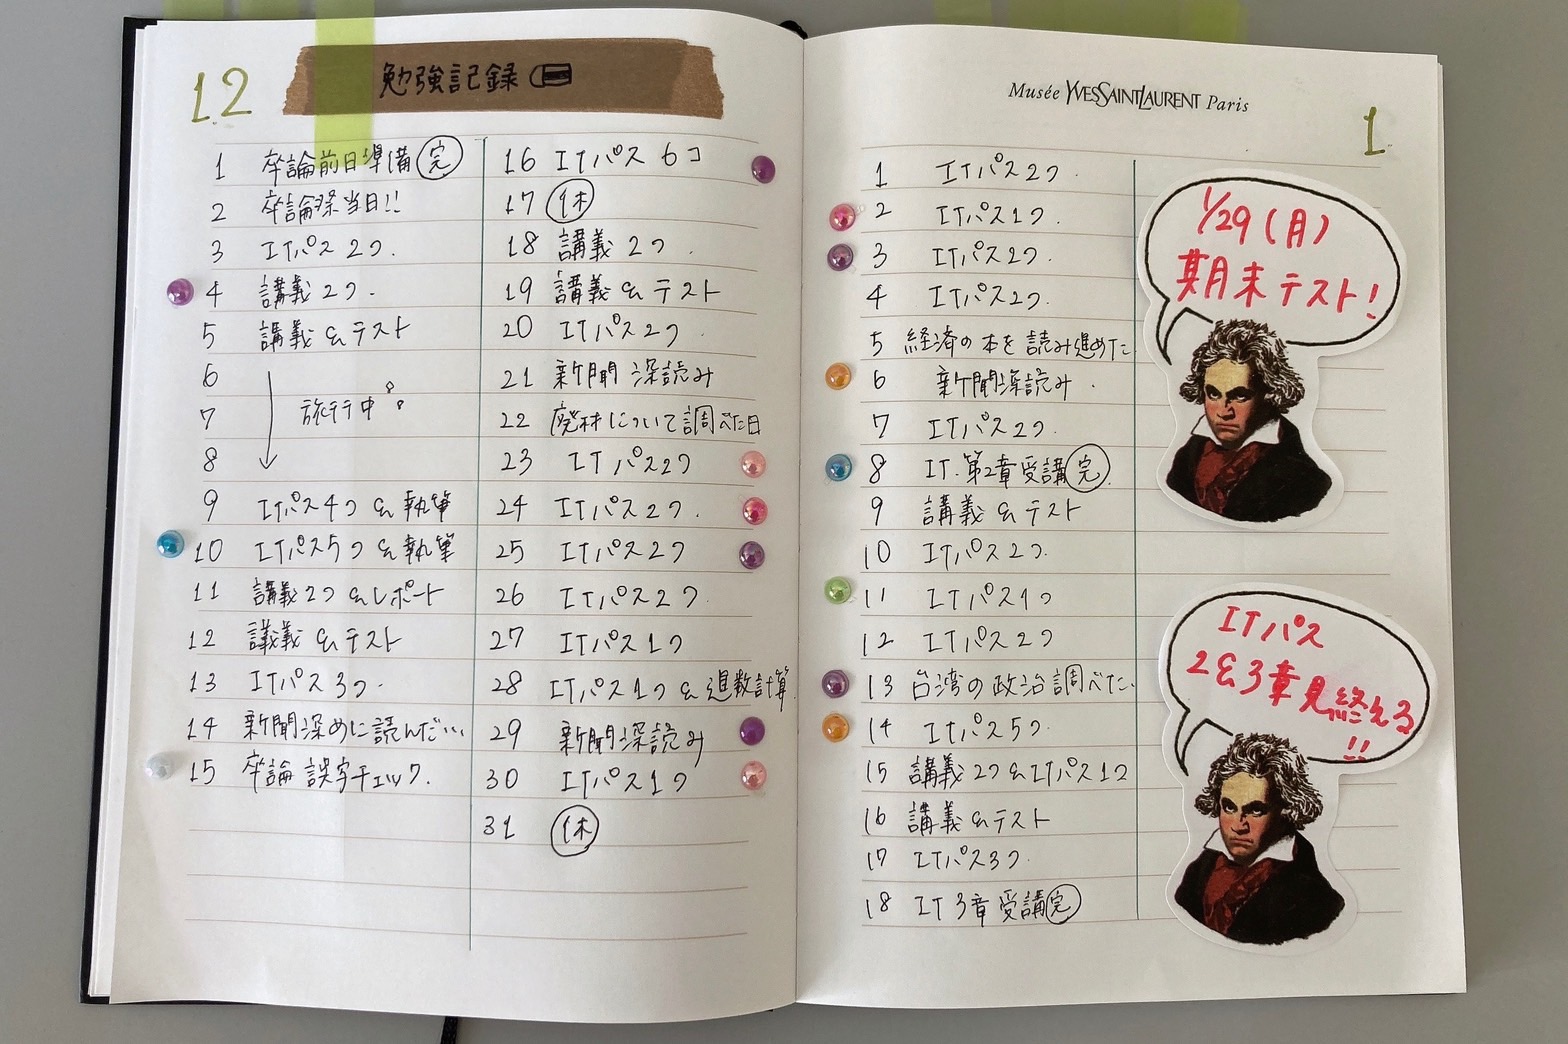 12
勉強記録
1 卒論前日準備 完
2 卒論祭当日!!
3 ITパス 2つ.
4 講義 2つ.
5 講義 & テスト
6
7 旅行中
8
9 ITパス4つ & 執筆
10 ITパス5つ & 執筆
11 講義2つ & レポート
12 講義 & テスト
13 ITパス 3つ.
14 新聞深めに読んだ…
15 卒論 誤字チェック.
16 ITパス 6コ
17 休
18 講義 2つ.
19 講義 & テスト
20 ITパス2つ.
21 新聞 深読み
22 廃材について調べた日
23 ITパス2つ
24 ITパス2つ.
25 ITパス2つ
26 ITパス2つ.
27 ITパス1つ
28 ITパス1つ & 進数計算
29 新聞深読み
30 ITパス1つ
31 休
Musée YVESSAINTLAURENT Paris
1
1 ITパス2つ.
2 ITパス1つ.
3 ITパス2つ.
4 ITパス2つ.
5 経済の本を読み進めた
6 新聞深読み.
7 ITパス2つ.
8 IT.第2章受講 完.
9 講義 & テスト
10 ITパス2つ.
11 ITパス1つ
12 ITパス2つ
13 台湾の政治調べた.
14 ITパス5つ.
15 講義2つ & ITパス1つ
16 講義 & テスト
17 ITパス3つ.
18 IT 3章 受講 完
1/29(月)
期末テスト!
ITパス
2&3章見終える
!!